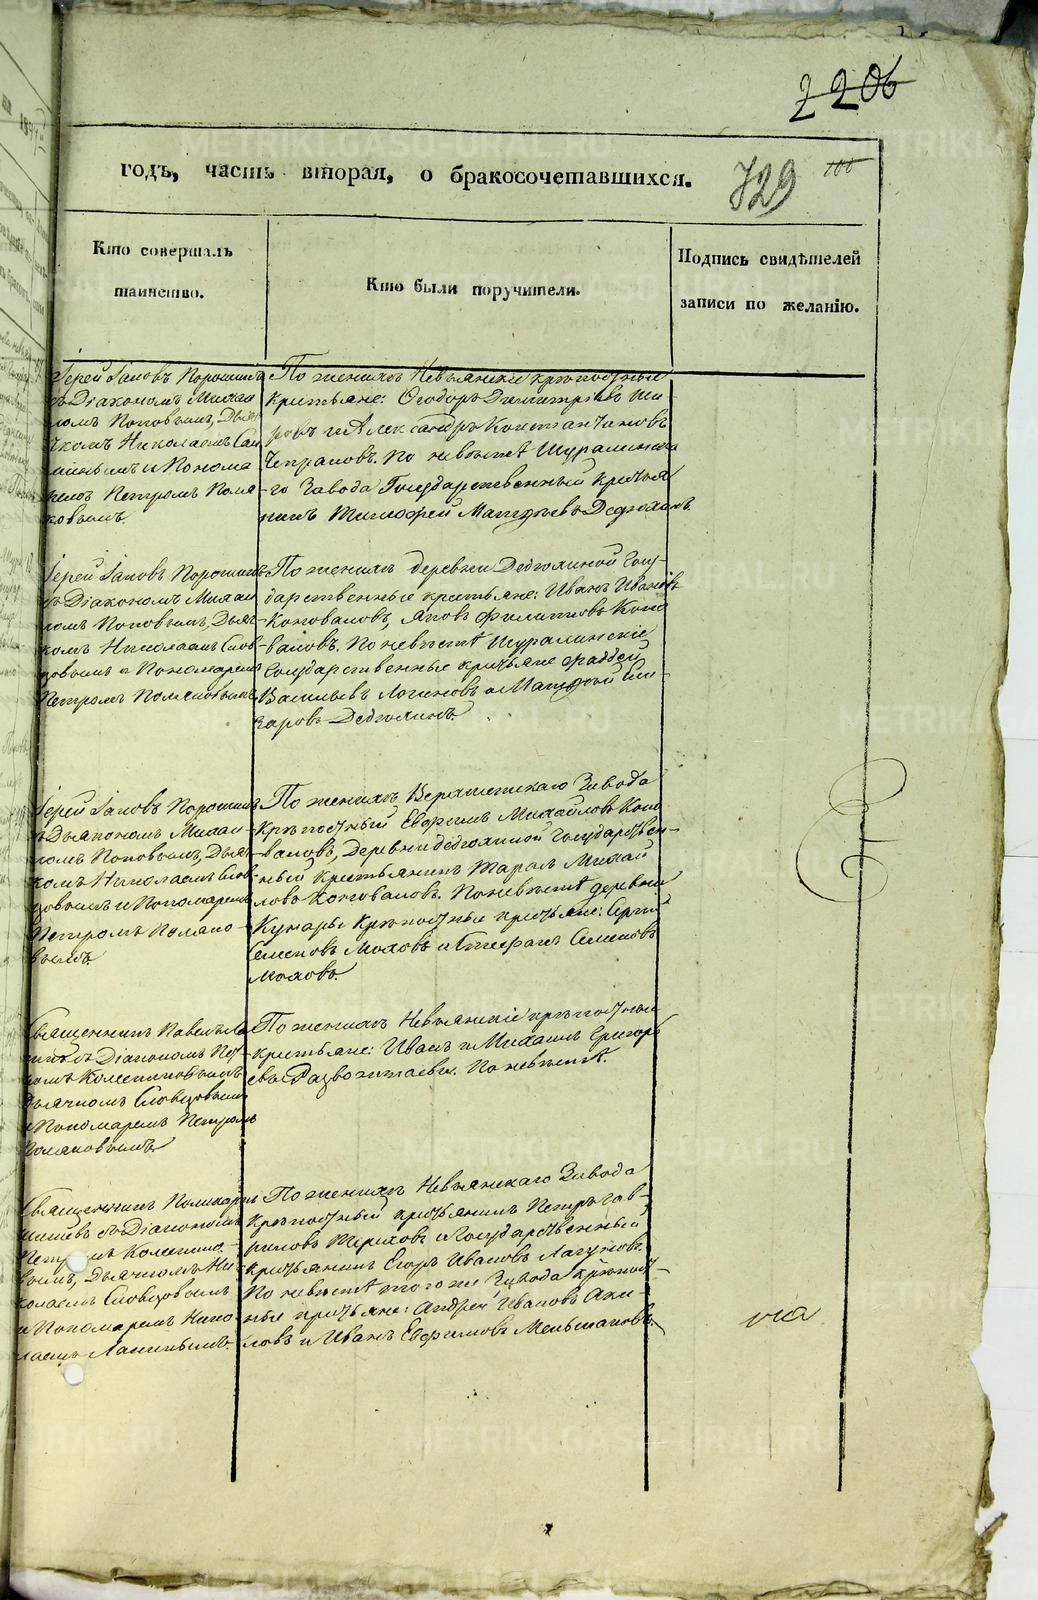 2206
годъ, часть вторая, о бракосочетавшихся.
729
Кто совершалъ
таинство.
Кто были поручители.
Подпись свидѣтелей
записи по желанію.
Іерей Іаковъ Порошинъ
съ Діакономъ Михаи
ломъ Поповымъ, Дьяч
комъ Николаемъ
и Понома
ремъ Петромъ Поля
ковымъ.
По женихѣ Невьянскіе крѣпостные
крестьяне: Ѳеодоръ Димитріевъ Ши
ровъ и Александръ Константиновъ
Чепраловъ. По невѣстѣ Шуралинска
го Завода Государственный крестья
нинъ Тимофей Матѳѣевъ Дедюхинъ.
Іерей Іаковъ Порошинъ
съ Діакономъ Михаи
ломъ Поповымъ, Дьяч
комъ Николаемъ Слов
цовымъ и Пономаремъ
Петромъ Поляковымъ.
По женихѣ деревни Дедюхиной Госу-
дарственные крестьяне: Иванъ Ивановъ
Коноваловъ, Яковъ Филипповъ Коно
валовъ. По невѣстѣ Шуралинскіе
Государственные крестьяне Фаддей
Васильевъ Логиновъ и Матѳѣй
Дедюхинъ.
Іерей Іаковъ Порошинъ
съ Дьякономъ Михаи-
ломъ Поповымъ, Дьяч
комъ Николаемъ Слов
цовымъ и Пономаремъ
Петромъ Поляко-
вымъ.
По женихѣ Верхтагилскаго Завода
Крѣпостный Евфимъ Михайловъ Коно
валовъ, Деревни Дедюхиной Государствен-
ный крестьянинъ Тарасъ Михай
ловъ Коноваловъ. По невѣстѣ деревни
Кунары крѣпостные крестьяне: Сергій
Семеновъ Моховъ и Стефанъ Семеновъ
Моховъ.
Священникъ Павелъ
съ Діакономъ Пет
ромъ Колесниковымъ
Дьячкомъ Словцовымъ
и Пономаремъ Петромъ
Поляковымъ.
По женихѣ Невьянскіе крѣпостные
крестьяне: Иванъ и Михаилъ Григорь
евы Развозжаевы. По невѣстѣ.
Священникъ Поликарпъ
съ Діакономъ
Петромъ Колеснико-
вымъ, Дьячкомъ Ни
колаемъ Словцовымъ
и Пономаремъ Нико
лаемъ
По женихѣ Невьянскаго Завода
крѣпостный крестьянинъ Петръ Гав-
риловъ Шериховъ и Государственный
крестьянинъ Егоръ Ивановъ Лагуновъ.
По невѣстѣ того же Завода крѣпост-
ные крестьяне: Андрей Ивановъ Аки-
ловъ и Иванъ Евфимовъ Мельшаковъ.
METRIKI.GASO-URAL.RU